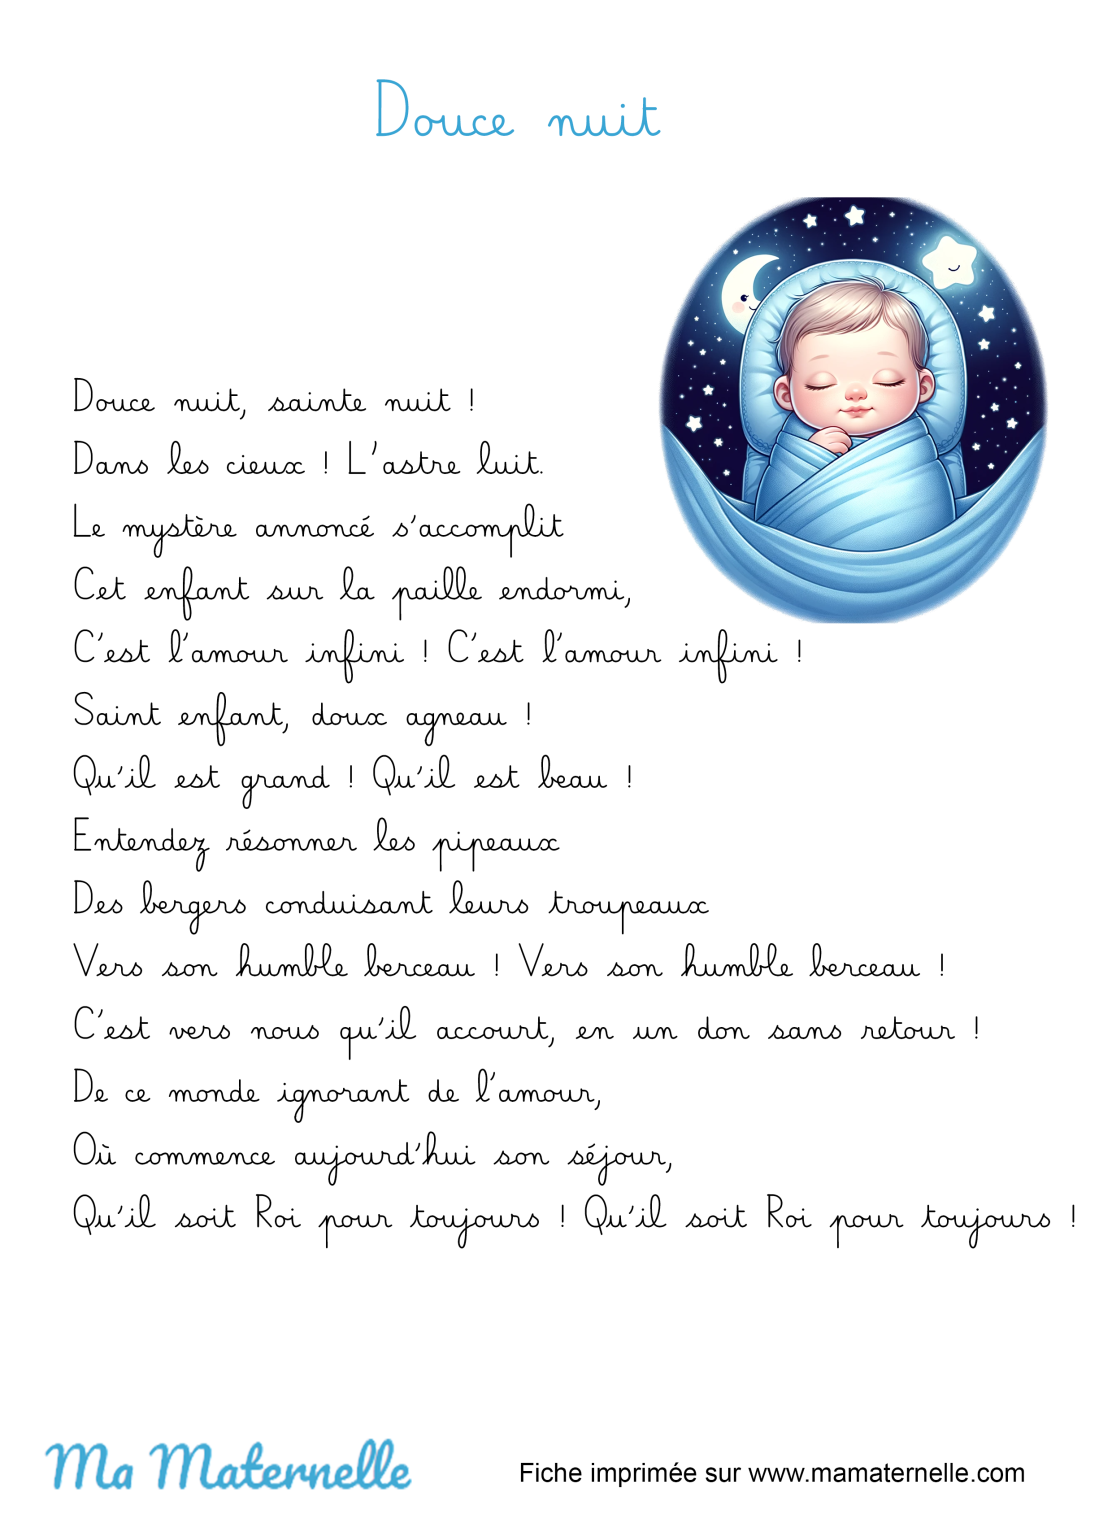 Douce nuit
Douce nuit, sainte nuit !
Dans les cieux ! L'astre luit.
Le mystère annoncé s'accomplit
Cet enfant sur la paille endormi,
C'est l'amour infini ! C'est l'amour infini !
Saint enfant, doux agneau !
Qu'il est grand ! Qu'il est beau !
Entendez résonner les pipeaux
Des bergers conduisant leurs troupeaux
Vers son humble berceau ! Vers son humble berceau !
C'est vers nous qu'il accourt, en un don sans retour !
De ce monde ignorant de l'amour,
Où commence aujourd'hui son séjour,
Qu'il soit Roi pour toujours ! Qu'il soit Roi pour toujours !
Ma Maternelle
Fiche imprimée sur www.mamaternelle.com